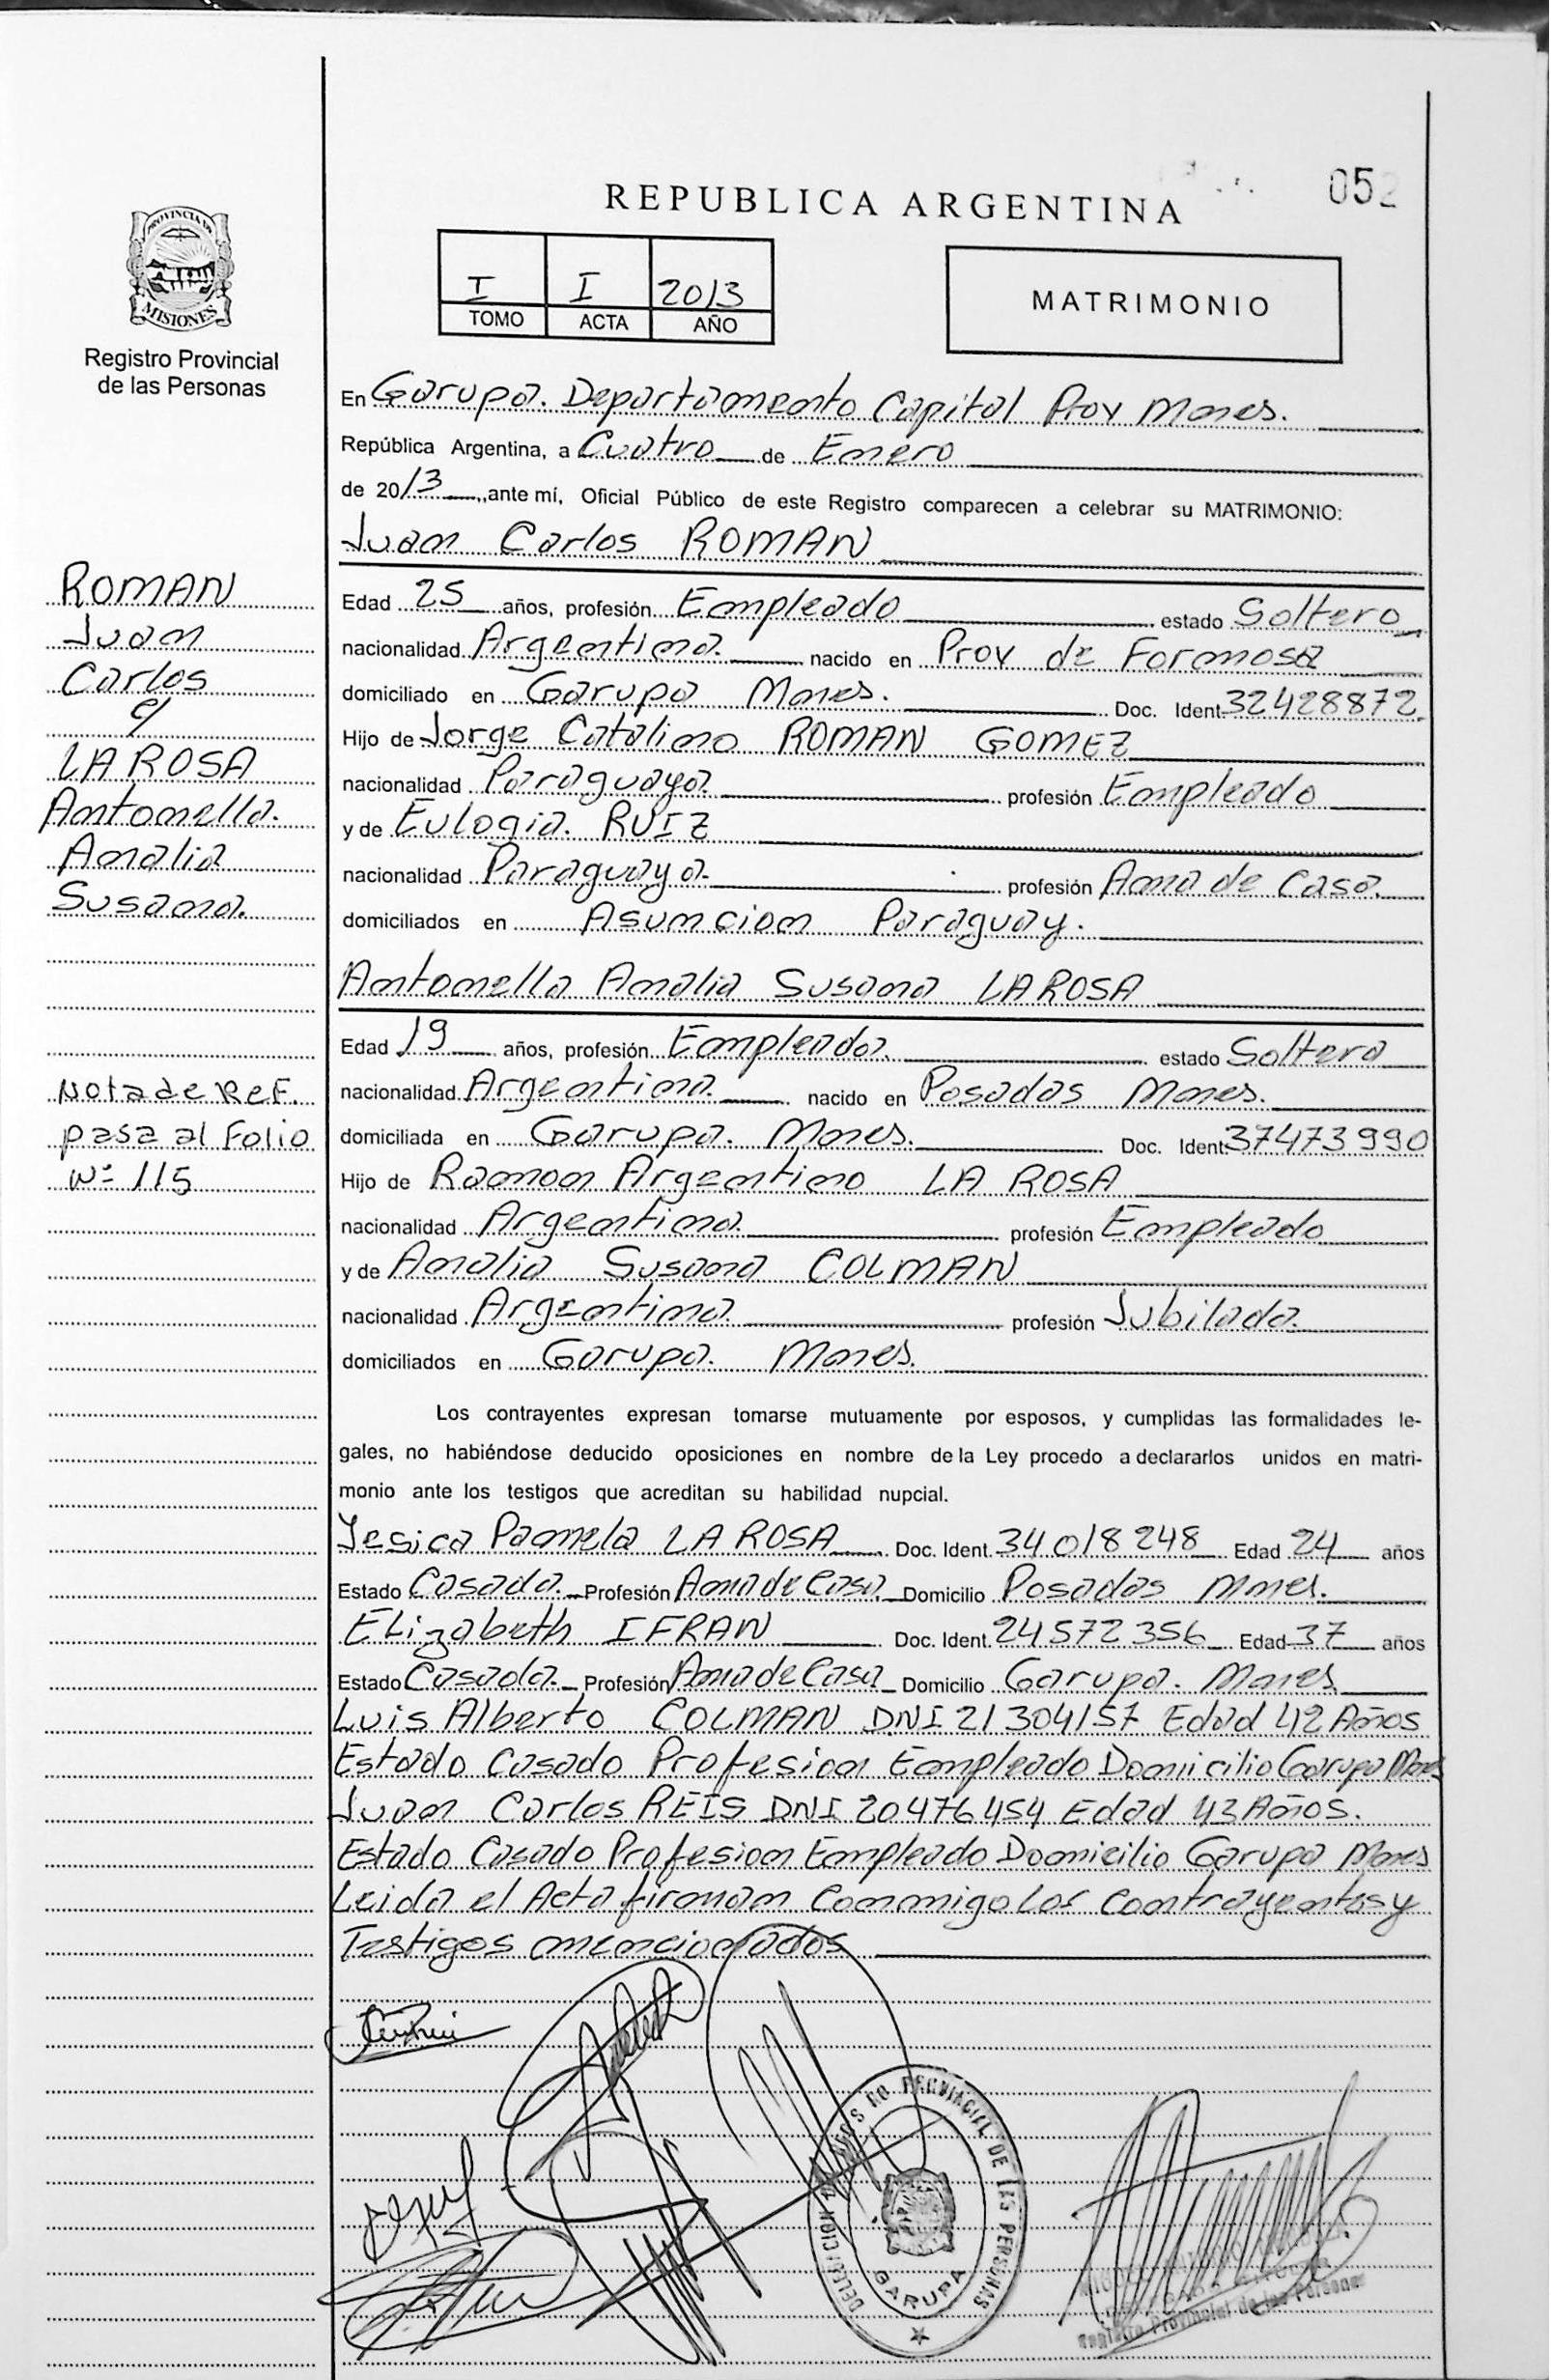 REPUBLICA ARGENTINA
052
PROVINCIA DE
MISIONES
Registro Provincial
de las Personas
I I 2013
TOMO ACTA AÑO
MATRIMONIO
En Garupa. Departamento Capital Prov Mnes.
República Argentina, a Cuatro de Enero
de 2013, ante mí, Oficial Público de este Registro comparecen a celebrar su MATRIMONIO:
Juan Carlos ROMAN
Edad 25 años, profesión Empleado estado Soltero
nacionalidad Argentina nacido en Prov de Formosa
domiciliado en Garupa Mnes. Doc. Ident. 32428872
Hijo de Jorge Catalino ROMAN GOMEZ
nacionalidad Paraguaya profesión Empleado
y de Eulogia RUIZ
nacionalidad Paraguaya profesión Ama de Casa.
domiciliados en Asuncion Paraguay.
Antonella Amalia Susana LA ROSA
Edad 19 años, profesión Empleada estado Soltera
nacionalidad Argentina nacido en Posadas Mnes.
domiciliada en Garupa. Mnes. Doc. Ident. 37473990
Hijo de Ramon Argentino LA ROSA
nacionalidad Argentina profesión Empleado
y de Amalia Susana COLMAN
nacionalidad Argentina profesión Jubilada.
domiciliados en Garupa. Mnes.
Los contrayentes expresan tomarse mutuamente por esposos, y cumplidas las formalidades le-
gales, no habiéndose deducido oposiciones en nombre de la Ley procedo a declararlos unidos en matri-
monio ante los testigos que acreditan su habilidad nupcial.
Yesica Pamela LA ROSA Doc. Ident. 34018248 Edad 24 años
Estado Casada. Profesión Ama de Casa Domicilio Posadas Mnes.
Elizabeth IFRAN Doc. Ident. 24572356 Edad 37 años
Estado Casada. Profesión Ama de Casa Domicilio Garupa. Mnes
Luis Alberto COLMAN DNI 21304157 Edad 42 Años
Estado Casado Profesion Empleado Domicilio Garupa Mnes
Juan Carlos REIS DNI 20476454 Edad 43 Años.
Estado Casado Profesion Empleado Domicilio Garupa Mnes
Leida el Acta firman Conmigo Los Contrayentes y
Testigos mencionados
ROMAN
Juan
Carlos
c/
LA ROSA
Antonella.
Amalia
Susana.
Nota de Ref.
pasa al Folio
Nº 115
PROVINCIAL DE LAS PERSONAS
GARUPA
Registro Provincial de las Personas